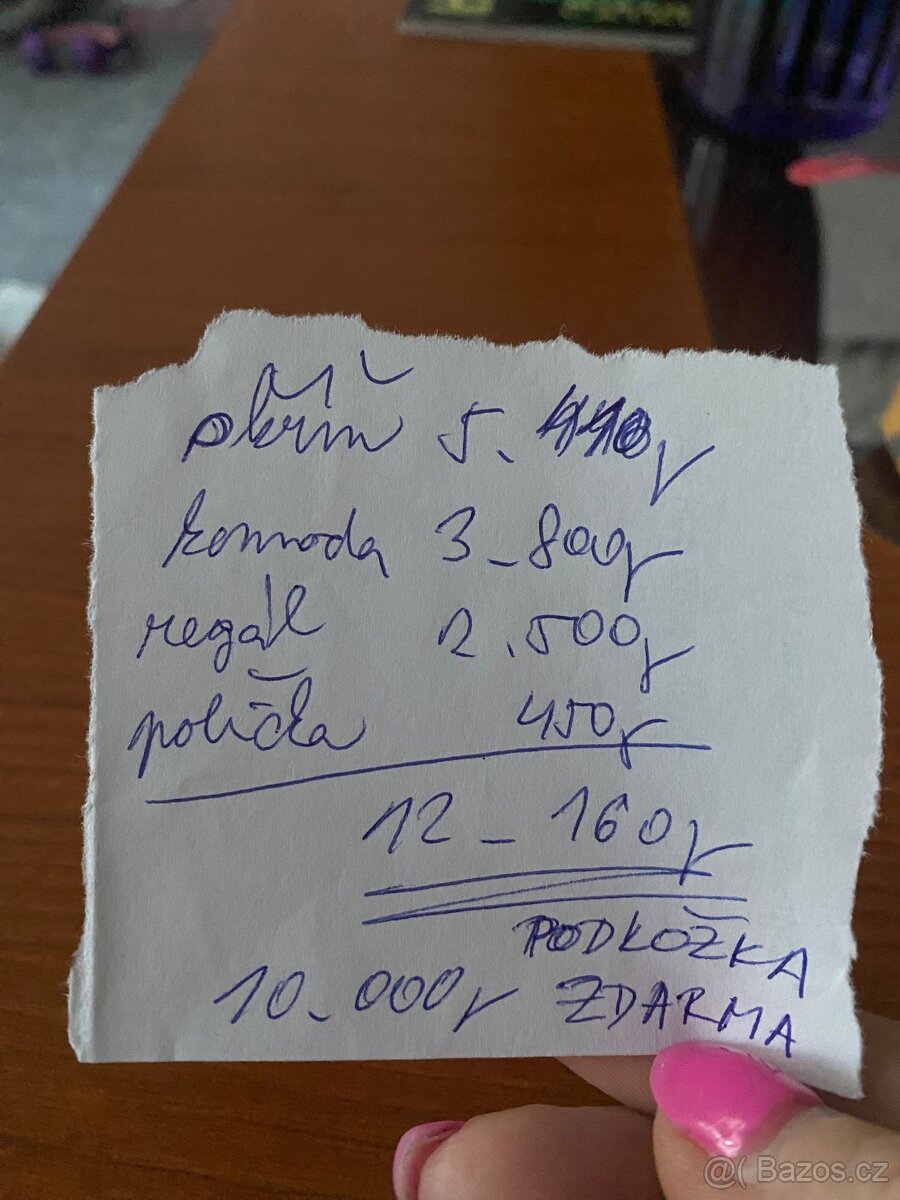 skříň 5.410,-
komoda 3-800,-
regál 2.500,-
polička 450,-
12-160,-
PODLOŽKA
10-000,- ZDARMA
@( Bazos.cz